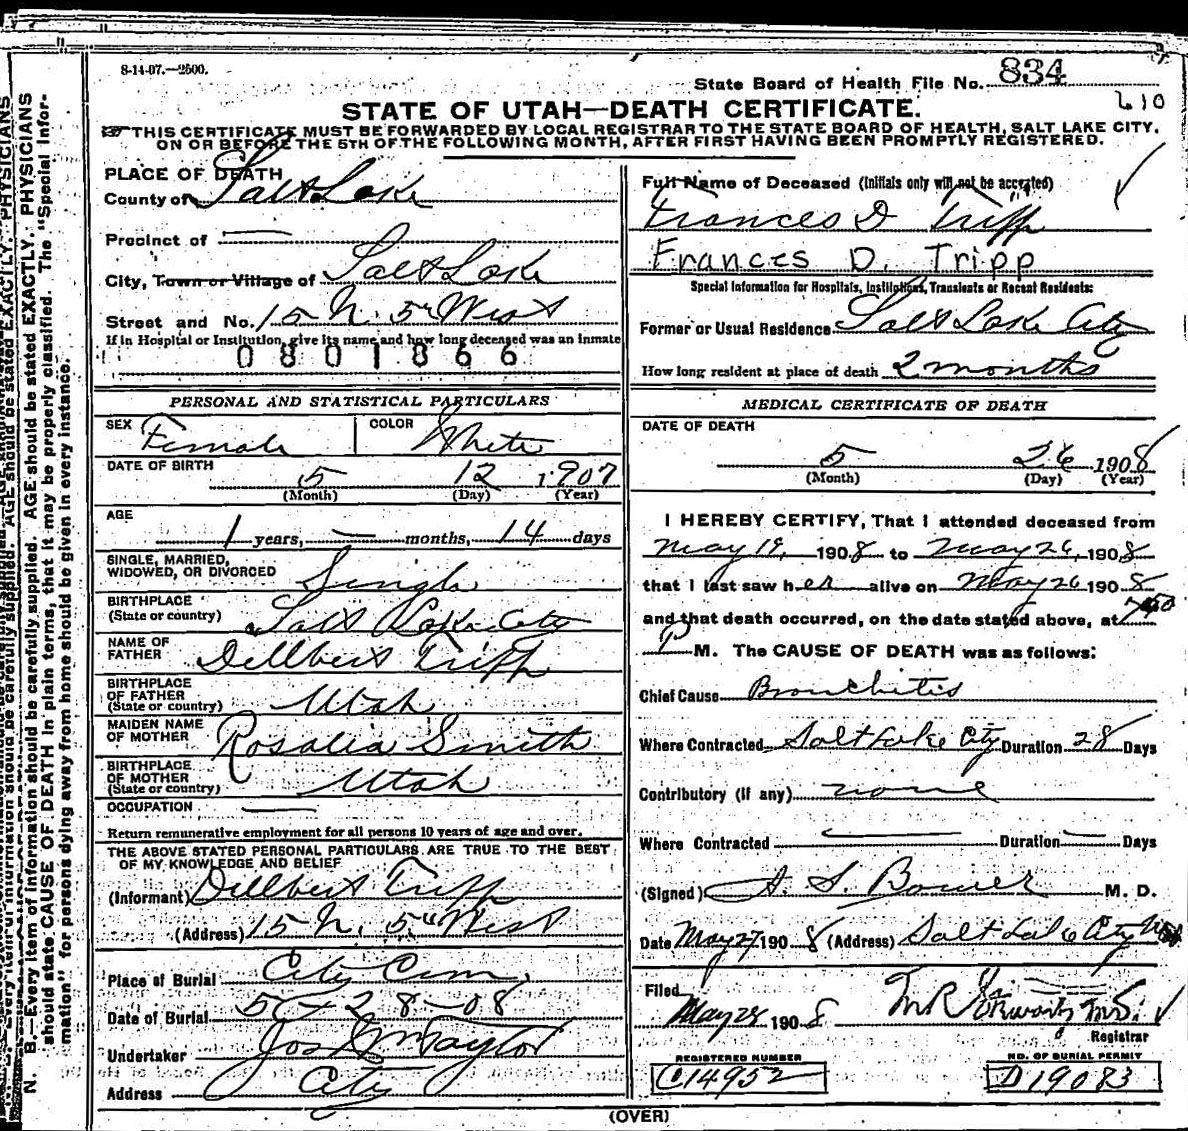 8-14-07.—2500.
State Board of Health File No. 834
610
STATE OF UTAH—DEATH CERTIFICATE.
THIS CERTIFICATE MUST BE FORWARDED BY LOCAL REGISTRAR TO THE STATE BOARD OF HEALTH, SALT LAKE CITY,
ON OR BEFORE THE 5TH OF THE FOLLOWING MONTH, AFTER FIRST HAVING BEEN PROMPTLY REGISTERED.
PLACE OF DEATH
County of Salt Lake
Precinct of —
City, Town or Village of Salt Lake
Street and No. 15 N. 5" West
If in Hospital or Institution, give its name and how long deceased was an inmate
0801866
PERSONAL AND STATISTICAL PARTICULARS
SEX Female COLOR White
DATE OF BIRTH
5 12 1907
(Month) (Day) (Year)
AGE
1 years, — months, 14 days
SINGLE, MARRIED,
WIDOWED, OR DIVORCED Single
BIRTHPLACE
(State or country) Salt Lake City
NAME OF
FATHER Dellbert Tripp
BIRTHPLACE
OF FATHER
(State or country) Utah
MAIDEN NAME
OF MOTHER Rosalia Smith
BIRTHPLACE
OF MOTHER
(State or country) Utah
OCCUPATION —
Return remunerative employment for all persons 10 years of age and over.
THE ABOVE STATED PERSONAL PARTICULARS ARE TRUE TO THE BEST
OF MY KNOWLEDGE AND BELIEF
(Informant) Dellbert Tripp
(Address) 15 N. 5" West
Place of Burial City Cem
Date of Burial 5-28-08
Undertaker Jos Wm Taylor
Address City
Full Name of Deceased (Initials only will not be accepted)
Frances D Tripp
Frances D. Tripp
Special Information for Hospitals, Institutions, Transients or Recent Residents:
Former or Usual Residence Salt Lake City
How long resident at place of death 2 months
MEDICAL CERTIFICATE OF DEATH
DATE OF DEATH
5 26 1908
(Month) (Day) (Year)
I HEREBY CERTIFY, That I attended deceased from
May 19, 1908 to May 26, 1908
that I last saw her alive on May 26 1908
and that death occurred, on the date stated above, at 7 50
P M. The CAUSE OF DEATH was as follows:
Chief Cause Bronchitis
Where Contracted Salt Lake City Duration 28 Days
Contributory (if any) none
Where Contracted — Duration — Days
(Signed) A. S. Bower M. D.
Date May 27 1908 (Address) Salt Lake City
Filed
May 28 1908 M R
Registrar
REGISTERED NUMBER
C14952
NO. OF BURIAL PERMIT
D19083
(OVER)
N. B.—Every item of information should be carefully supplied. AGE should be stated EXACTLY. PHYSICIANS
should state CAUSE OF DEATH in plain terms, that it may be properly classified. The "Special Infor-
mation" for persons dying away from home should be given in every instance.